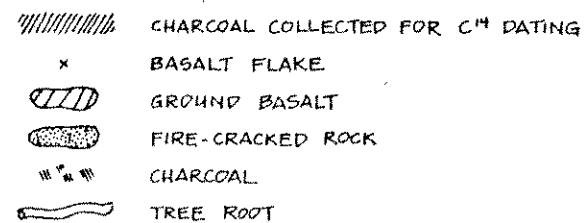 CHARCOAL COLLECTED FOR C14 DATING
BASALT FLAKE
GROUND BASALT
FIRE-CRACKED ROCK
CHARCOAL
TREE ROOT